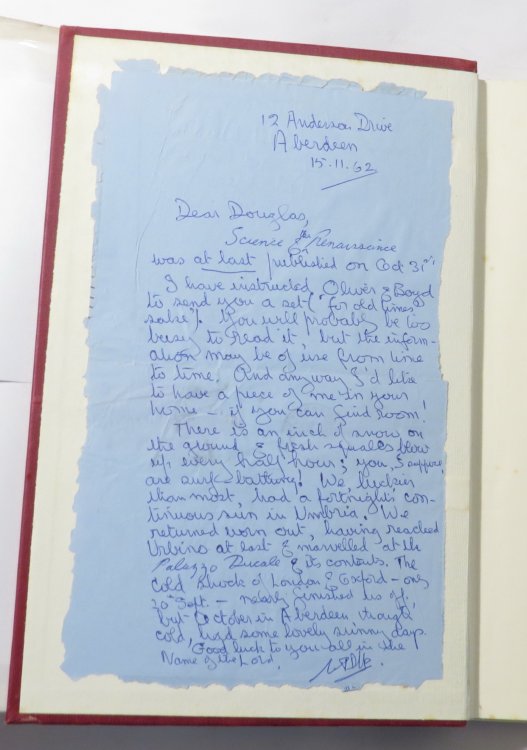 12 Anderson Drive
Aberdeen
15.11.62
Dear Douglas,
Science & the Renaissance
was at last published on Oct 31st.
I have instructed Oliver & Boyd
to send you a set ("for old times'
sake"). You will probably be too
busy to read it, but the inform-
ation may be of use from time
to time. And anyway I'd like
to have a piece of me in your
home – if you can find room!
There is an inch of snow on
the ground & fresh squalls blow
up every half hour; you, I suppose,
are surf bathing! We luckier
than most, had a fortnight's con-
tinuous sun in Umbria. We
returned worn out, having reached
Urbino at last & marvelled at the
Palazzo Ducale & its contents. The
cold shock of London & Oxford – only
20th Sept. – nearly finished us off,
but October in Aberdeen, though
cold, had some lovely sunny days.
Good luck to you all in the
Name of the Lord.